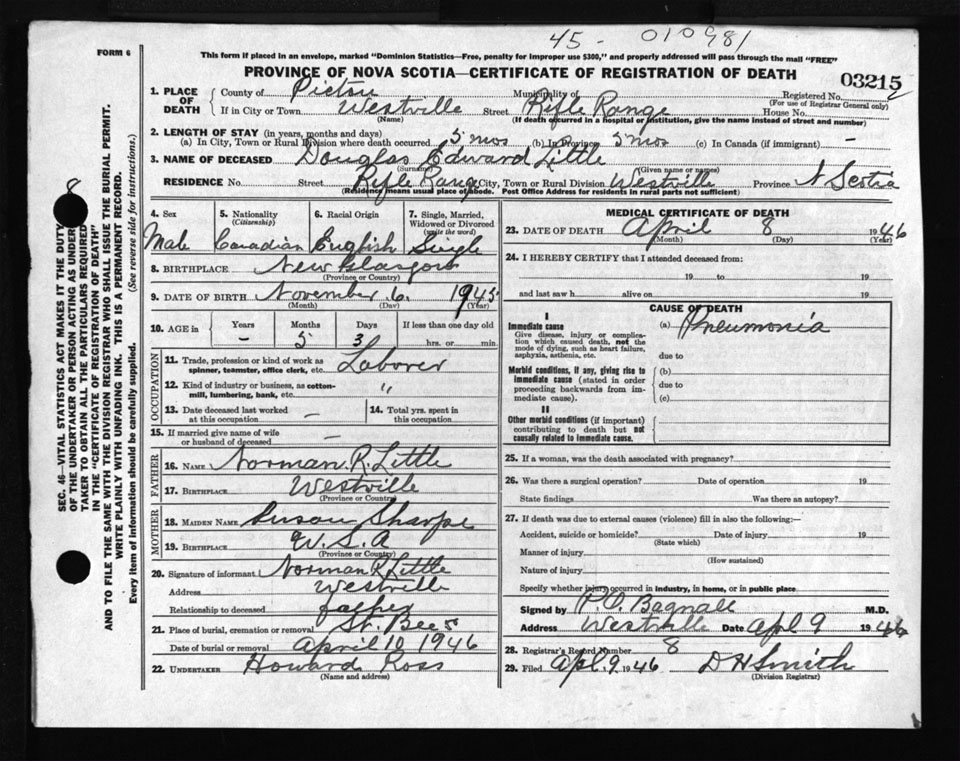 45- 010981
FORM 6
This form if placed in an envelope, marked "Dominion Statistics—Free, penalty for improper use $300," and properly addressed will pass through the mail "FREE"
PROVINCE OF NOVA SCOTIA—CERTIFICATE OF REGISTRATION OF DEATH 03215
1. PLACE OF DEATH County of Pictou Municipality of Registered No.
(For use of Registrar General only)
If in City or Town Westville Street Rifle Range House No.
(Name) (If death occurred in a hospital or institution, give the name instead of street and number)
2. LENGTH OF STAY (in years, months and days)
(a) In City, Town or Rural Division where death occurred 5 mos (b) In Province 5 mos (c) In Canada (if immigrant) —
3. NAME OF DECEASED Douglas Edward Little
(Surname) (Given name or names)
RESIDENCE No. Street Rifle Range City, Town or Rural Division Westville Province N Scotia
(Residence means usual place of abode. Post Office Address for residents in rural parts not sufficient)
4. Sex Male
5. Nationality (Citizenship) Canadian
6. Racial Origin English
7. Single, Married, Widowed or Divorced (write the word) Single
8. BIRTHPLACE New Glasgow
(Province or Country)
9. DATE OF BIRTH November 6. 1945
(Month) (Day) (Year)
10. AGE in Years Months Days If less than one day old
— 5 3 hrs. or min.
OCCUPATION
11. Trade, profession or kind of work as spinner, teamster, office clerk, etc. Laborer
12. Kind of industry or business, as cotton-mill, lumbering, bank, etc. "
13. Date deceased last worked at this occupation —
14. Total yrs. spent in this occupation
15. If married give name of wife or husband of deceased —
FATHER
16. NAME Norman. R. Little
17. BIRTHPLACE Westville
(Province or Country)
MOTHER
18. MAIDEN NAME Susan Sharpe
19. BIRTHPLACE U.S.A
(Province or Country)
20. Signature of informant Norman R. Little
Address Westville
Relationship to deceased father
21. Place of burial, cremation or removal St. Bees
Date of burial or removal April 10 1946
22. UNDERTAKER Howard Ross
(Name and address)
MEDICAL CERTIFICATE OF DEATH
23. DATE OF DEATH April 8 1946
(Month) (Day) (Year)
24. I HEREBY CERTIFY that I attended deceased from:
19 to 19
and last saw h alive on 19
CAUSE OF DEATH
I
Immediate cause (a) Pneumonia
Give disease, injury or complication which caused death, not the mode of dying, such as heart failure, asphyxia, asthenia, etc.
due to
Morbid conditions, if any, giving rise to immediate cause (stated in order proceeding backwards from immediate cause).
(b)
due to
(c)
II
Other morbid conditions (if important) contributing to death but not causally related to immediate cause.
25. If a woman, was the death associated with pregnancy?
26. Was there a surgical operation? Date of operation 19
State findings Was there an autopsy?
27. If death was due to external causes (violence) fill in also the following:—
Accident, suicide or homicide? Date of injury 19
(State which)
Manner of injury
(How sustained)
Nature of injury
Specify whether injury occurred in industry, in home, or in public place
Signed by P.O. Bagnall M.D.
Address Westville Date Apl 9 1946
28. Registrar's Record Number 8
29. Filed Apl. 9. 1946 D H Smith
(Division Registrar)
SEC. 46—VITAL STATISTICS ACT MAKES IT THE DUTY
OF THE UNDERTAKER OR PERSON ACTING AS UNDER-
TAKER TO OBTAIN ALL THE PARTICULARS REQUIRED
IN THE "CERTIFICATE OF REGISTRATION OF DEATH"
AND TO FILE THE SAME WITH THE DIVISION REGISTRAR WHO SHALL ISSUE THE BURIAL PERMIT.
WRITE PLAINLY WITH UNFADING INK. THIS IS A PERMANENT RECORD.
Every item of information should be carefully supplied. (See reverse side for instructions.)